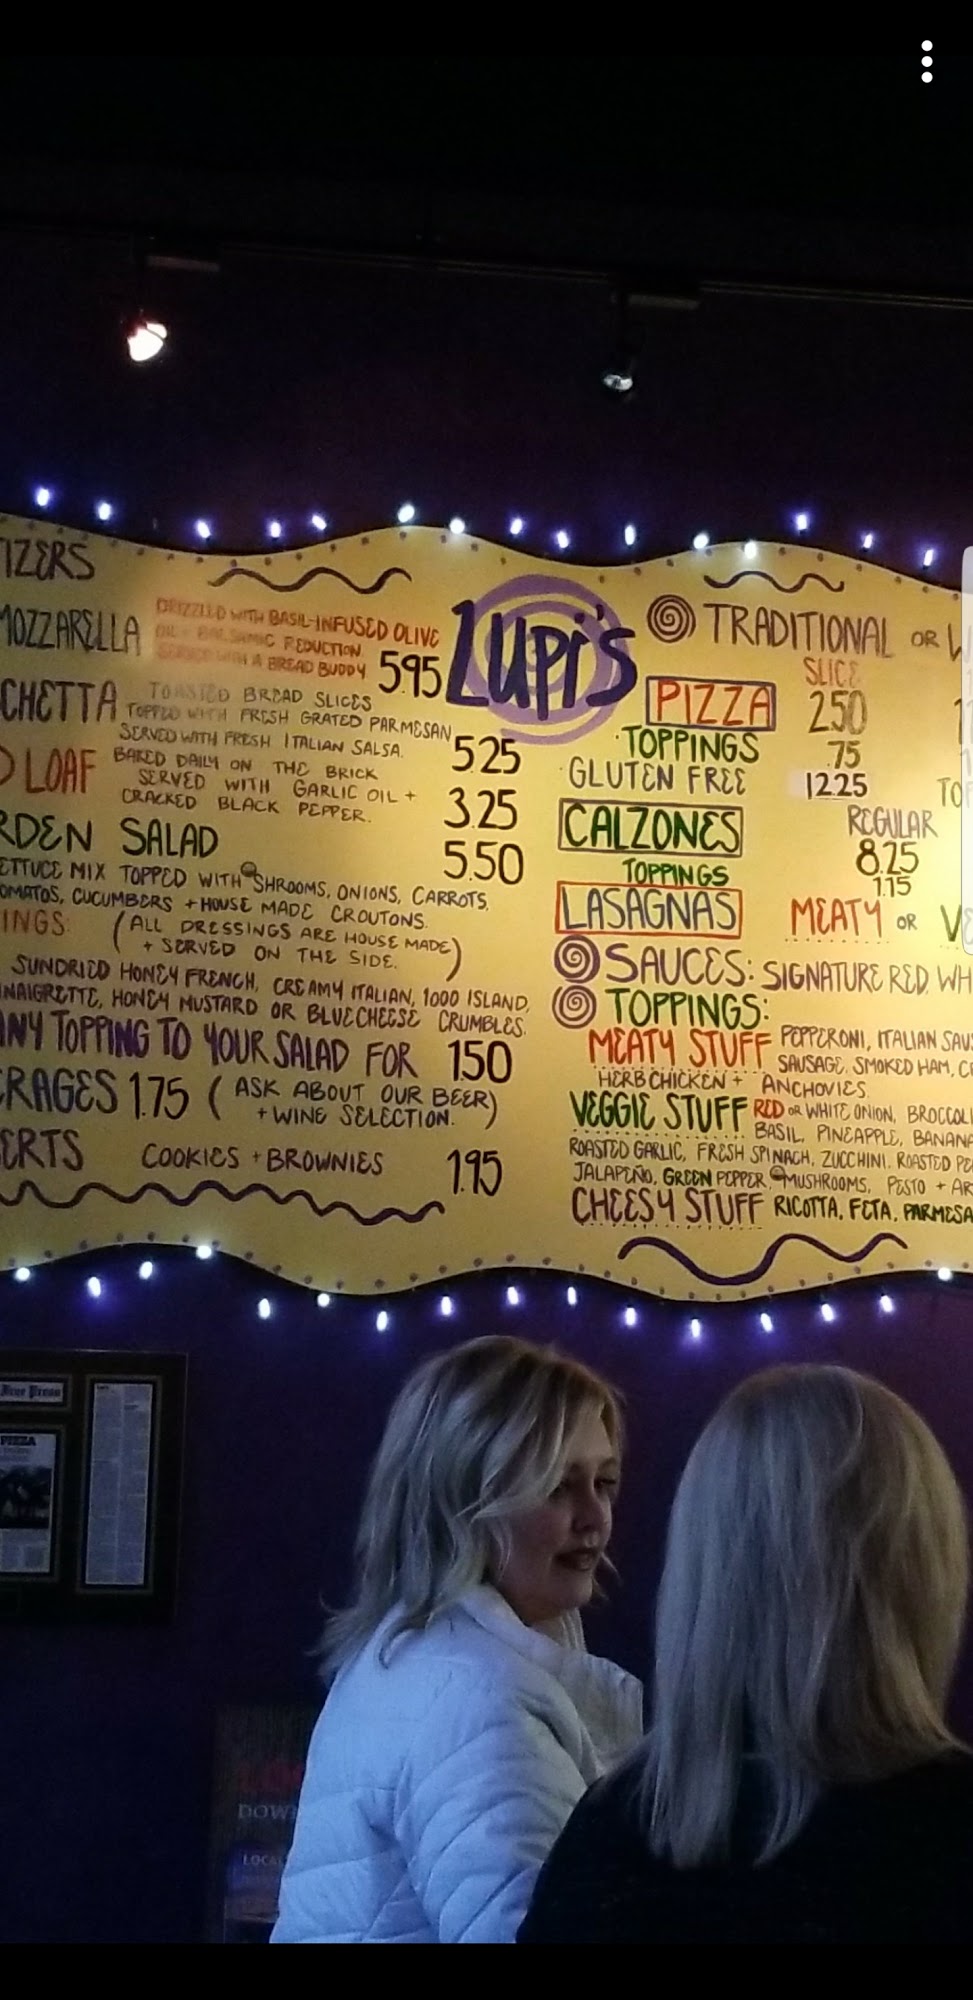 IZERS
MOZZARELLA
DRIZZLED WITH BASIL-INFUSED OLIVE
OIL + BALSAMIC REDUCTION.
SERVED WITH A BREAD BUDDY 5.95
CHETTA TOASTED BREAD SLICES
TOPPED WITH FRESH GRATED PARMESAN
SERVED WITH FRESH ITALIAN SALSA. 5.25
D LOAF BAKED DAILY ON THE BRICK
SERVED WITH GARLIC OIL +
CRACKED BLACK PEPPER. 3.25
RDEN SALAD 5.50
ETTUCE MIX TOPPED WITH SHROOMS, ONIONS, CARROTS,
OMATOS, CUCUMBERS + HOUSE MADE CROUTONS.
INGS: (ALL DRESSINGS ARE HOUSE MADE
+ SERVED ON THE SIDE.)
SUNDRIED HONEY FRENCH, CREAMY ITALIAN, 1000 ISLAND,
NAIGRETTE, HONEY MUSTARD OR BLUE CHEESE CRUMBLES.
ANY TOPPING TO YOUR SALAD FOR 1.50
ERAGES 1.75 (ASK ABOUT OUR BEER
+ WINE SELECTION.)
ERTS COOKIES + BROWNIES 1.95
Lupi's
TRADITIONAL OR W
SLICE
PIZZA 2.50
TOPPINGS .75
GLUTEN FREE 12.25
TOP
REGULAR
CALZONES 8.25
TOPPINGS 1.15
LASAGNAS MEATY OR VE
SAUCES: SIGNATURE RED, WH
TOPPINGS:
MEATY STUFF PEPPERONI, ITALIAN SAUS
SAUSAGE, SMOKED HAM,
HERB CHICKEN + ANCHOVIES.
VEGGIE STUFF RED OR WHITE ONION, BROCCOLI
BASIL, PINEAPPLE, BANANA
ROASTED GARLIC, FRESH SPINACH, ZUCCHINI, ROASTED PE
JALAPEÑO, GREEN PEPPER, MUSHROOMS, PESTO + AR
CHEESY STUFF RICOTTA, FETA, PARMESA
Free Press
PIZZA
DOW
LOCAL